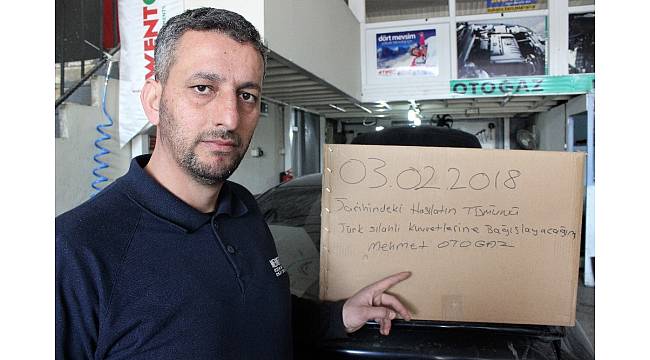 WENTO
dört mevsim
OTOGAZ
03.02.2018
Tarihindeki Hasılatın TÜMÜNÜ
Türk silahlı kuvvetlerine Bağışlayacağım
Mehmet OTOGAZ